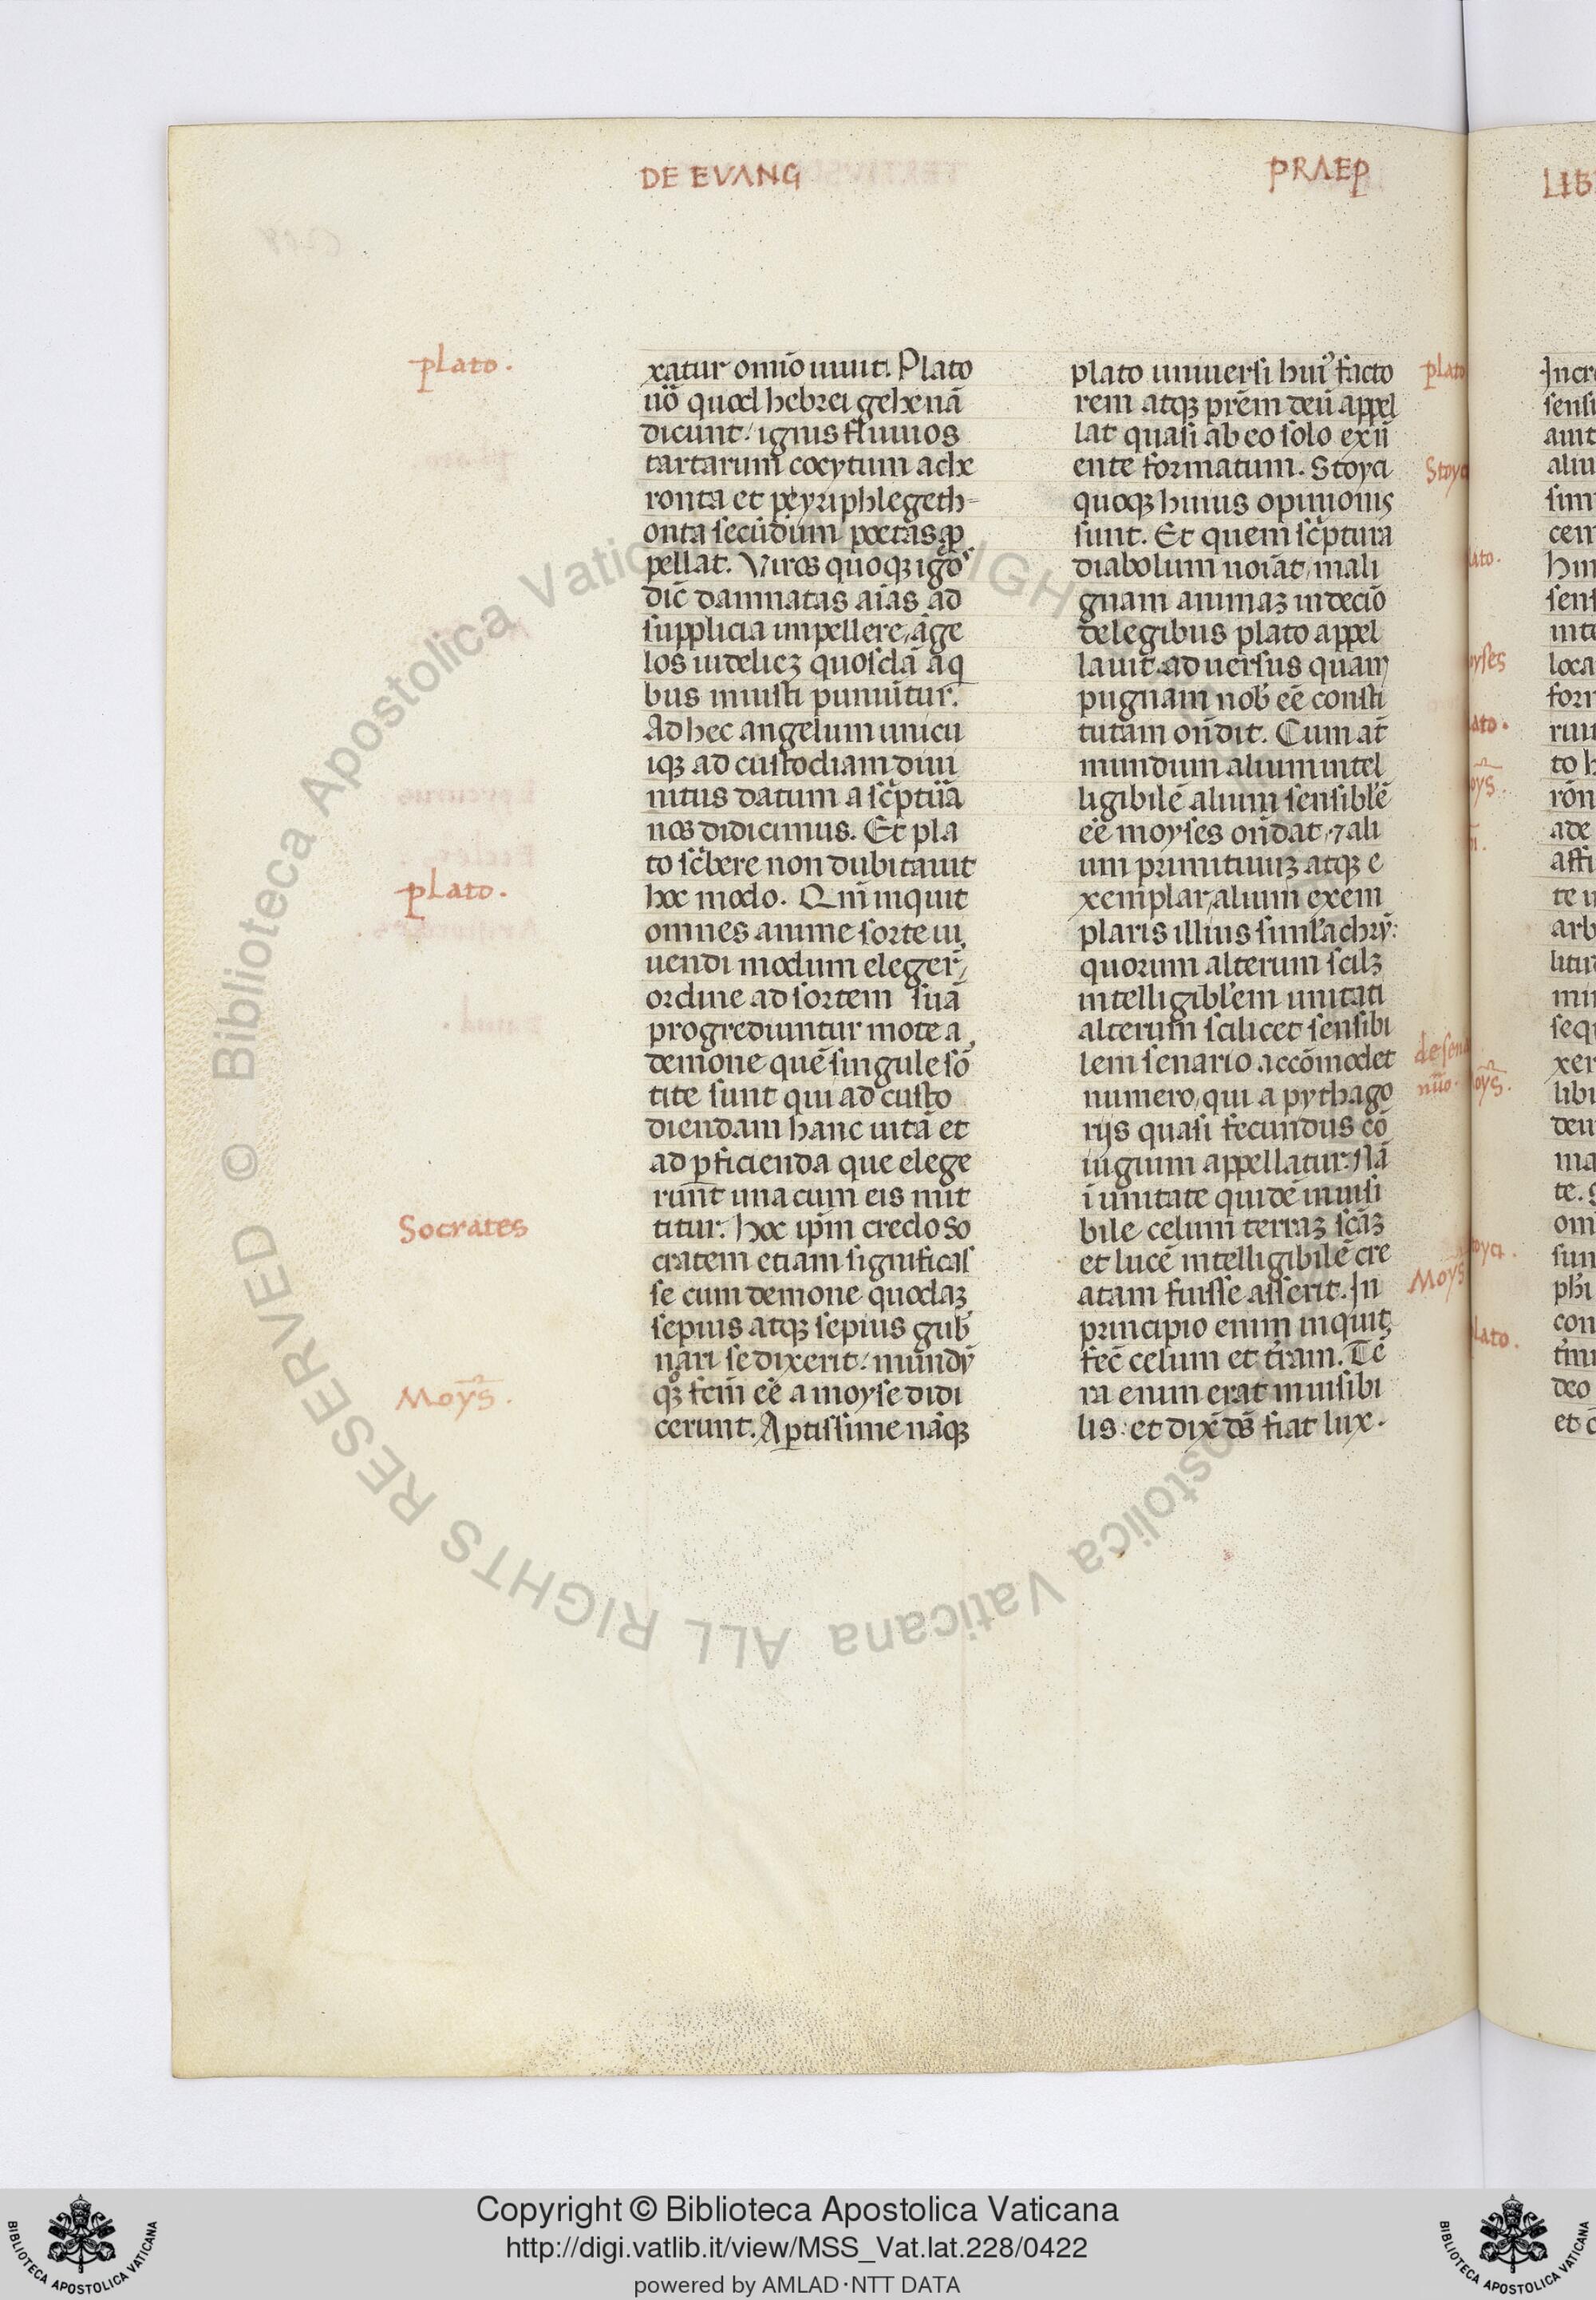 DE EVANG
PRAEP
plato.
xatur omīo uiuit. Plato
uō quod hebrei gehenā
dicunt/ ignis fluuios
tartarum cocytum ache
ronta et peyriphlegeth-
onta secūdum poetas ap
pellat. Viros quoqꝫ igōs
dic̄ damnatas aīas ad
supplicia impellere, āge
los uidelicꝫ quosdā a q
bus iniusti puniūtur.
Ad hec angelum unicu
iqꝫ ad custodiam diui
nitus datum a scͥptur̄a
nos didicimus. Et pla
to scͥbere non dubitauit
plato.
hoc modo. Qm̄ inquit
omnes anime sorte ui
uendi modum eleger̄,
ordine ad sortem suā
progrediuntur mote a
demone quē singule sō
tite sunt qui ad custo
diendam hanc uitā et
ad ꝑficienda que elege
runt una cum eis mit
Socrates
titur. hoc ip̄m credo So
cratem etiam significas
se cum demone quodaꝫ
sepius atqꝫ sepius gub̄
nari se dixerit/ mundȳ
Moyͬs.
qꝫ fcm̄ eē a moyse didi
cerunt. Aptissime nāqꝫ
plato uniuersi huiꝰ facto
rem atqꝫ prēm deū appel
lat quasi ab eo solo exn̄
ente formatum. Stoyci
quoqꝫ huius opinionis
sunt. Et quem scͥptura
diabolum noīat, mali
gnam animaꝫ in decio
de legibus plato appel
lauit. aduersus quam
pugnam nob̄ eē consti
tutam on̄dit. Cum at̄
mundum alium intel
ligibilē alium sensiblē
eē moyses on̄dat, ⁊ ali
um primitiuuꝫ atqꝫ e
xemplar, alium exem
plaris illius simlachrȳ:
quorum alterum scilꝫ
intelligiblem unitati
alterum scilicet sensibi
lem senario accōmodet
numero, qui a pythago
rijs quasi fecundus cō
iugium appellatur. Nā
ī unitate quidē inuisi
bile celum terraꝫ scāꝫ
et lucē intelligibilē cre
atam fuisse asserit. In
principio enim inquit
fec̄ celum et tr̄am. Tē
ra enim erat inuisibi
lis: et dix̄ ds̄ fiat lux.
plato
Stoyci
de sena
Moys
Copyright © Biblioteca Apostolica Vaticana
http://digi.vatlib.it/view/MSS_Vat.lat.228/0422
powered by AMLAD·NTT DATA